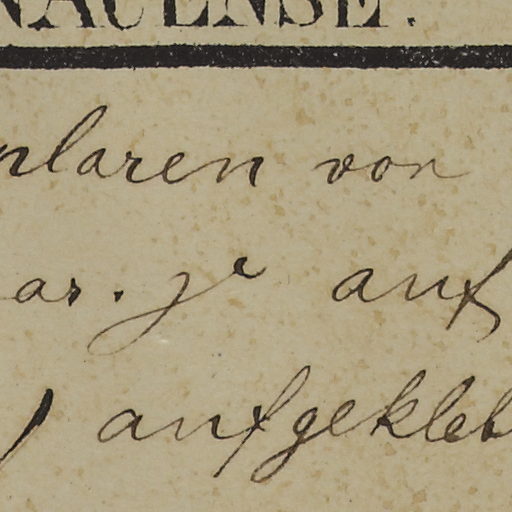 NAUENSE.
nplaren von
ar. γ auf
) aufgeklebt